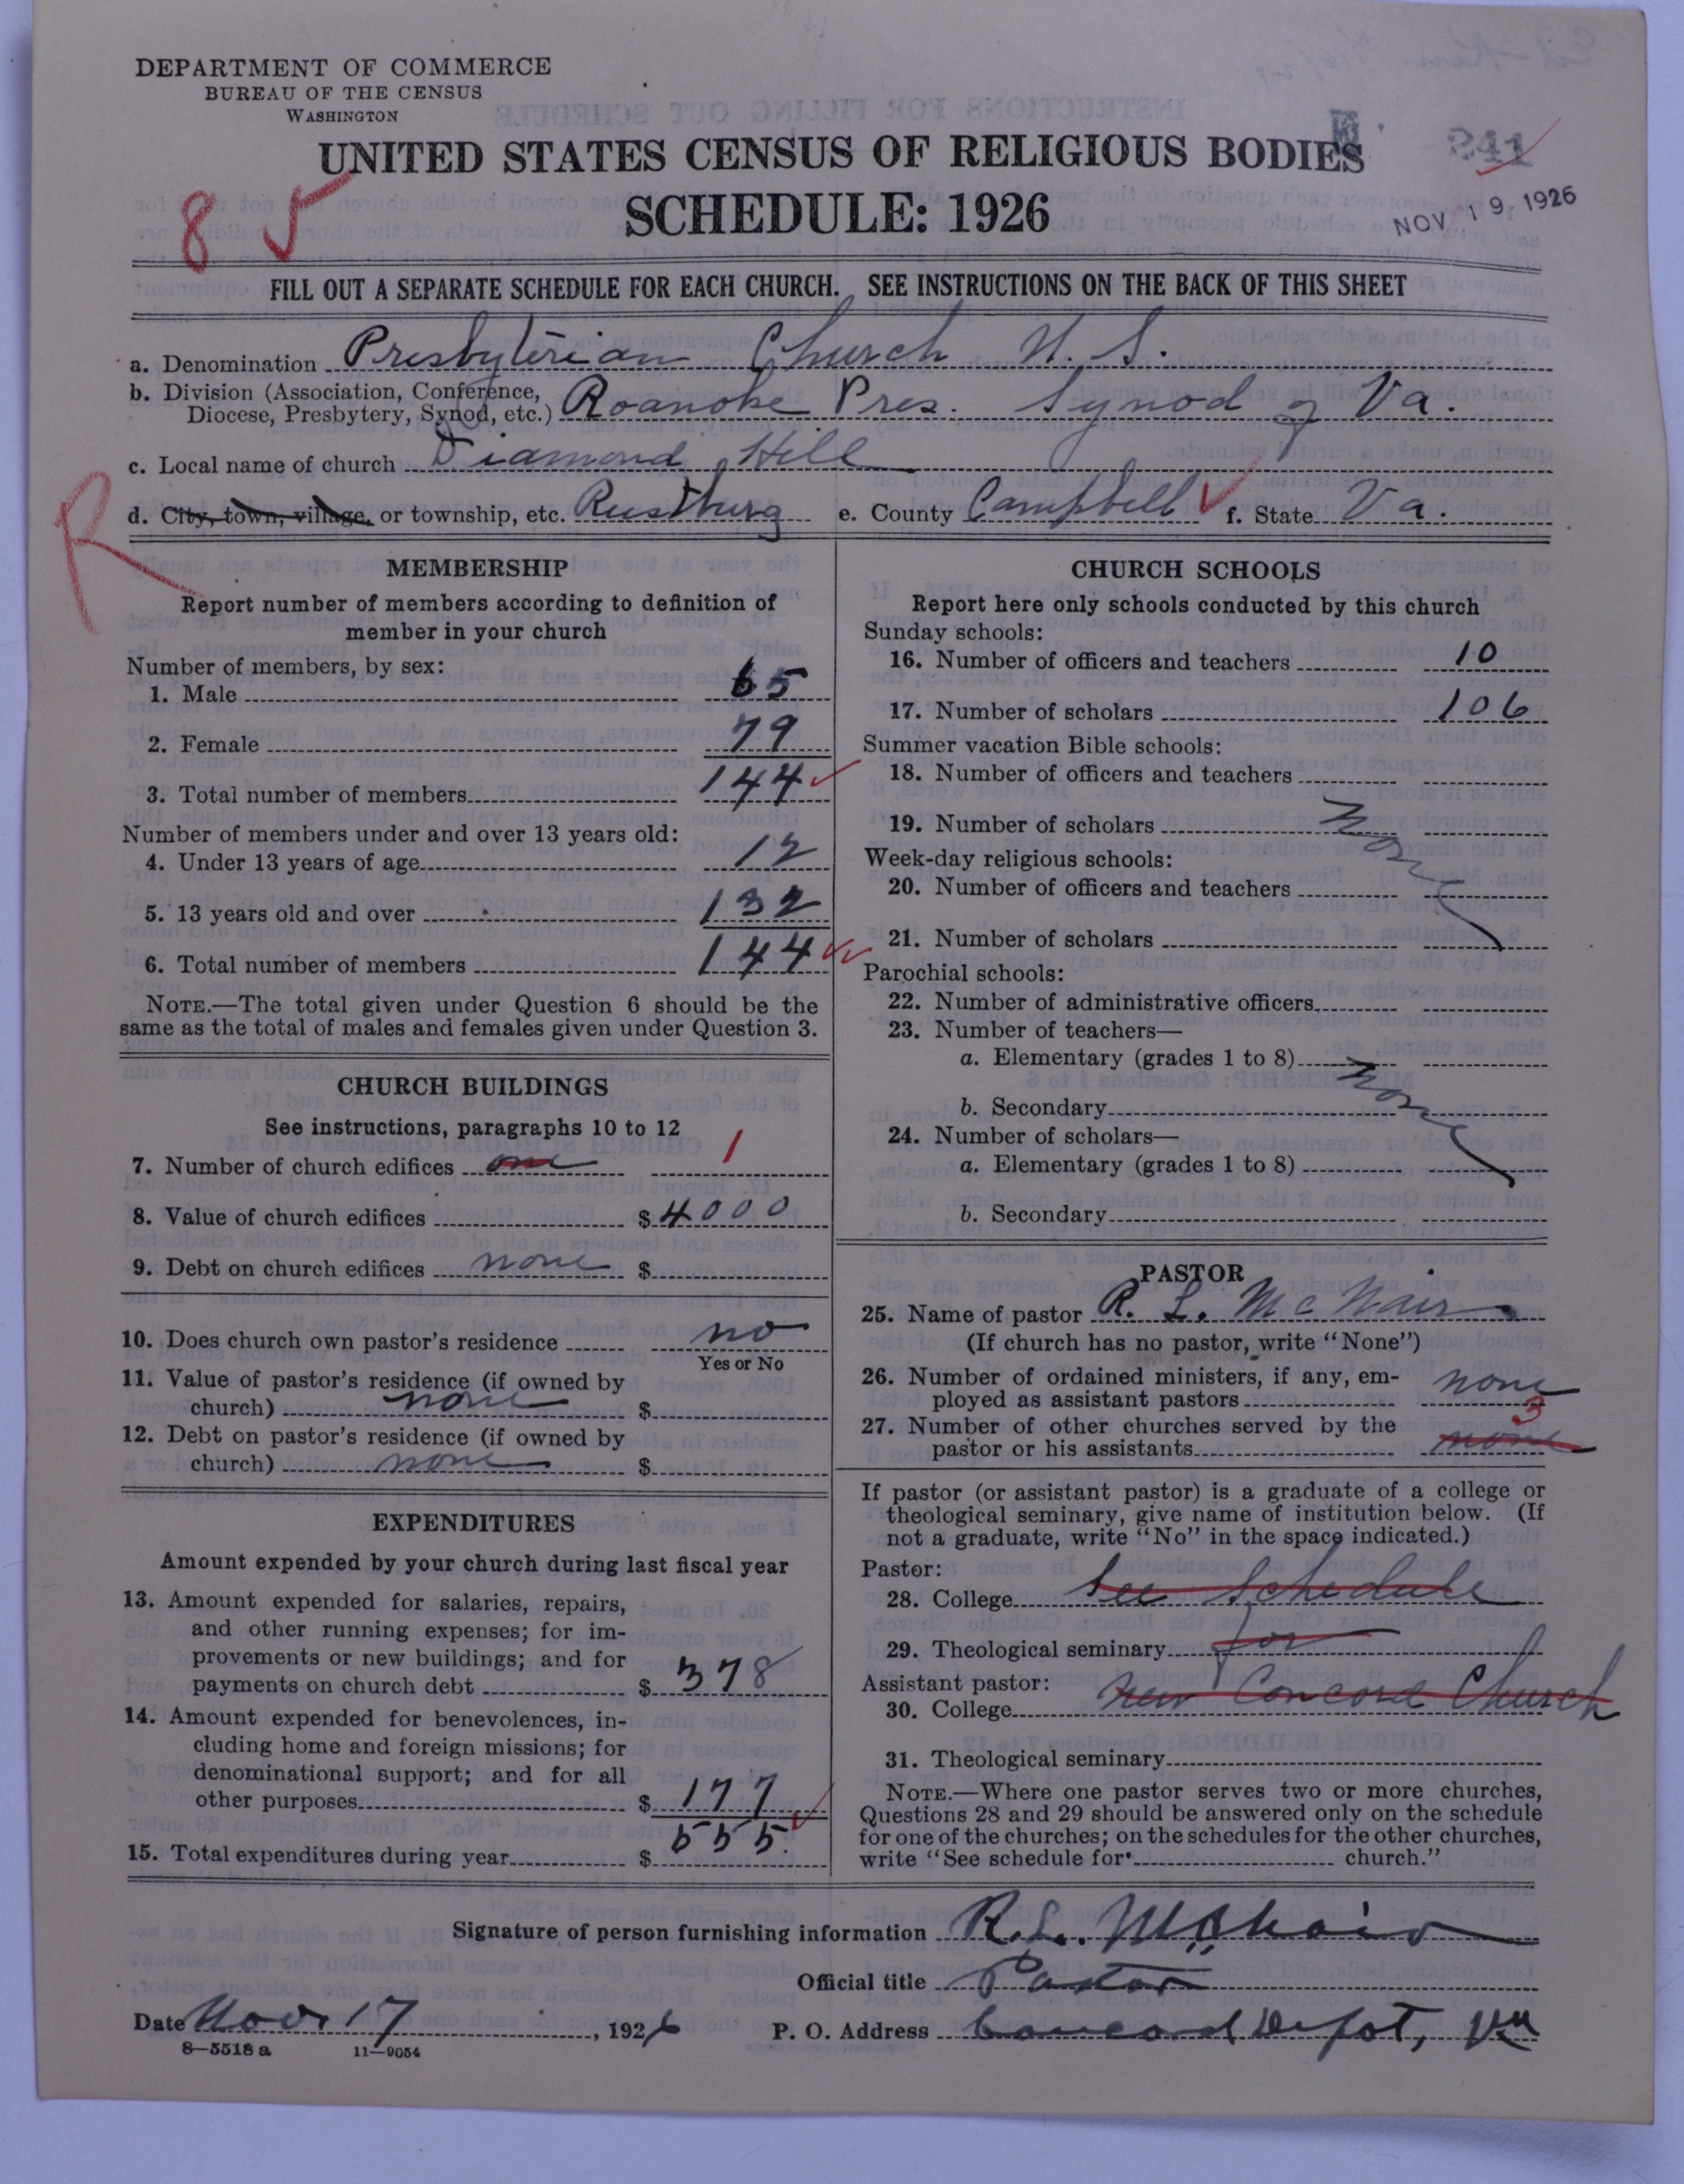 DEPARTMENT OF COMMERCE
BUREAU OF THE CENSUS
WASHINGTON
UNITED STATES CENSUS OF RELIGIOUS BODIES
SCHEDULE: 1926
241
NOV 19 1926
8
FILL OUT A SEPARATE SCHEDULE FOR EACH CHURCH. SEE INSTRUCTIONS ON THE BACK OF THIS SHEET
a. Denomination Presbyterian Church U. S.
b. Division (Association, Conference,
Diocese, Presbytery, Synod, etc.) Roanoke Pres. Synod of Va.
c. Local name of church Diamond Hill
R
d. City, town, village, or township, etc. Rustburg e. County Campbell f. State Va.
MEMBERSHIP
Report number of members according to definition of
member in your church
Number of members, by sex:
1. Male 65
2. Female 79
3. Total number of members 144
Number of members under and over 13 years old:
4. Under 13 years of age 12
5. 13 years old and over 132
6. Total number of members 144
NOTE.—The total given under Question 6 should be the
same as the total of males and females given under Question 3.
CHURCH BUILDINGS
See instructions, paragraphs 10 to 12
7. Number of church edifices one 1
8. Value of church edifices $ 4000
9. Debt on church edifices none $
10. Does church own pastor's residence no
Yes or No
11. Value of pastor's residence (if owned by
church) none $
12. Debt on pastor's residence (if owned by
church) none $
EXPENDITURES
Amount expended by your church during last fiscal year
13. Amount expended for salaries, repairs,
and other running expenses; for im-
provements or new buildings; and for
payments on church debt $ 378
14. Amount expended for benevolences, in-
cluding home and foreign missions; for
denominational support; and for all
other purposes $ 177
15. Total expenditures during year $ 555.
CHURCH SCHOOLS
Report here only schools conducted by this church
Sunday schools:
16. Number of officers and teachers 10
17. Number of scholars 106
Summer vacation Bible schools:
18. Number of officers and teachers
19. Number of scholars none
Week-day religious schools:
20. Number of officers and teachers
21. Number of scholars
Parochial schools:
22. Number of administrative officers
23. Number of teachers—
a. Elementary (grades 1 to 8) none
b. Secondary
24. Number of scholars—
a. Elementary (grades 1 to 8)
b. Secondary
PASTOR
25. Name of pastor R. L. McNair
(If church has no pastor, write "None")
26. Number of ordained ministers, if any, em-
ployed as assistant pastors none
27. Number of other churches served by the 3
pastor or his assistants none
If pastor (or assistant pastor) is a graduate of a college or
theological seminary, give name of institution below. (If
not a graduate, write "No" in the space indicated.)
Pastor:
28. College See Schedule
29. Theological seminary for
Assistant pastor:
30. College New Concord Church
31. Theological seminary
NOTE.—Where one pastor serves two or more churches,
Questions 28 and 29 should be answered only on the schedule
for one of the churches; on the schedules for the other churches,
write "See schedule for church."
Signature of person furnishing information R. L. McNair
Official title Pastor
Date Nov 17, 1926 P. O. Address Concord Depot, Va
8—5518 a 11—9054